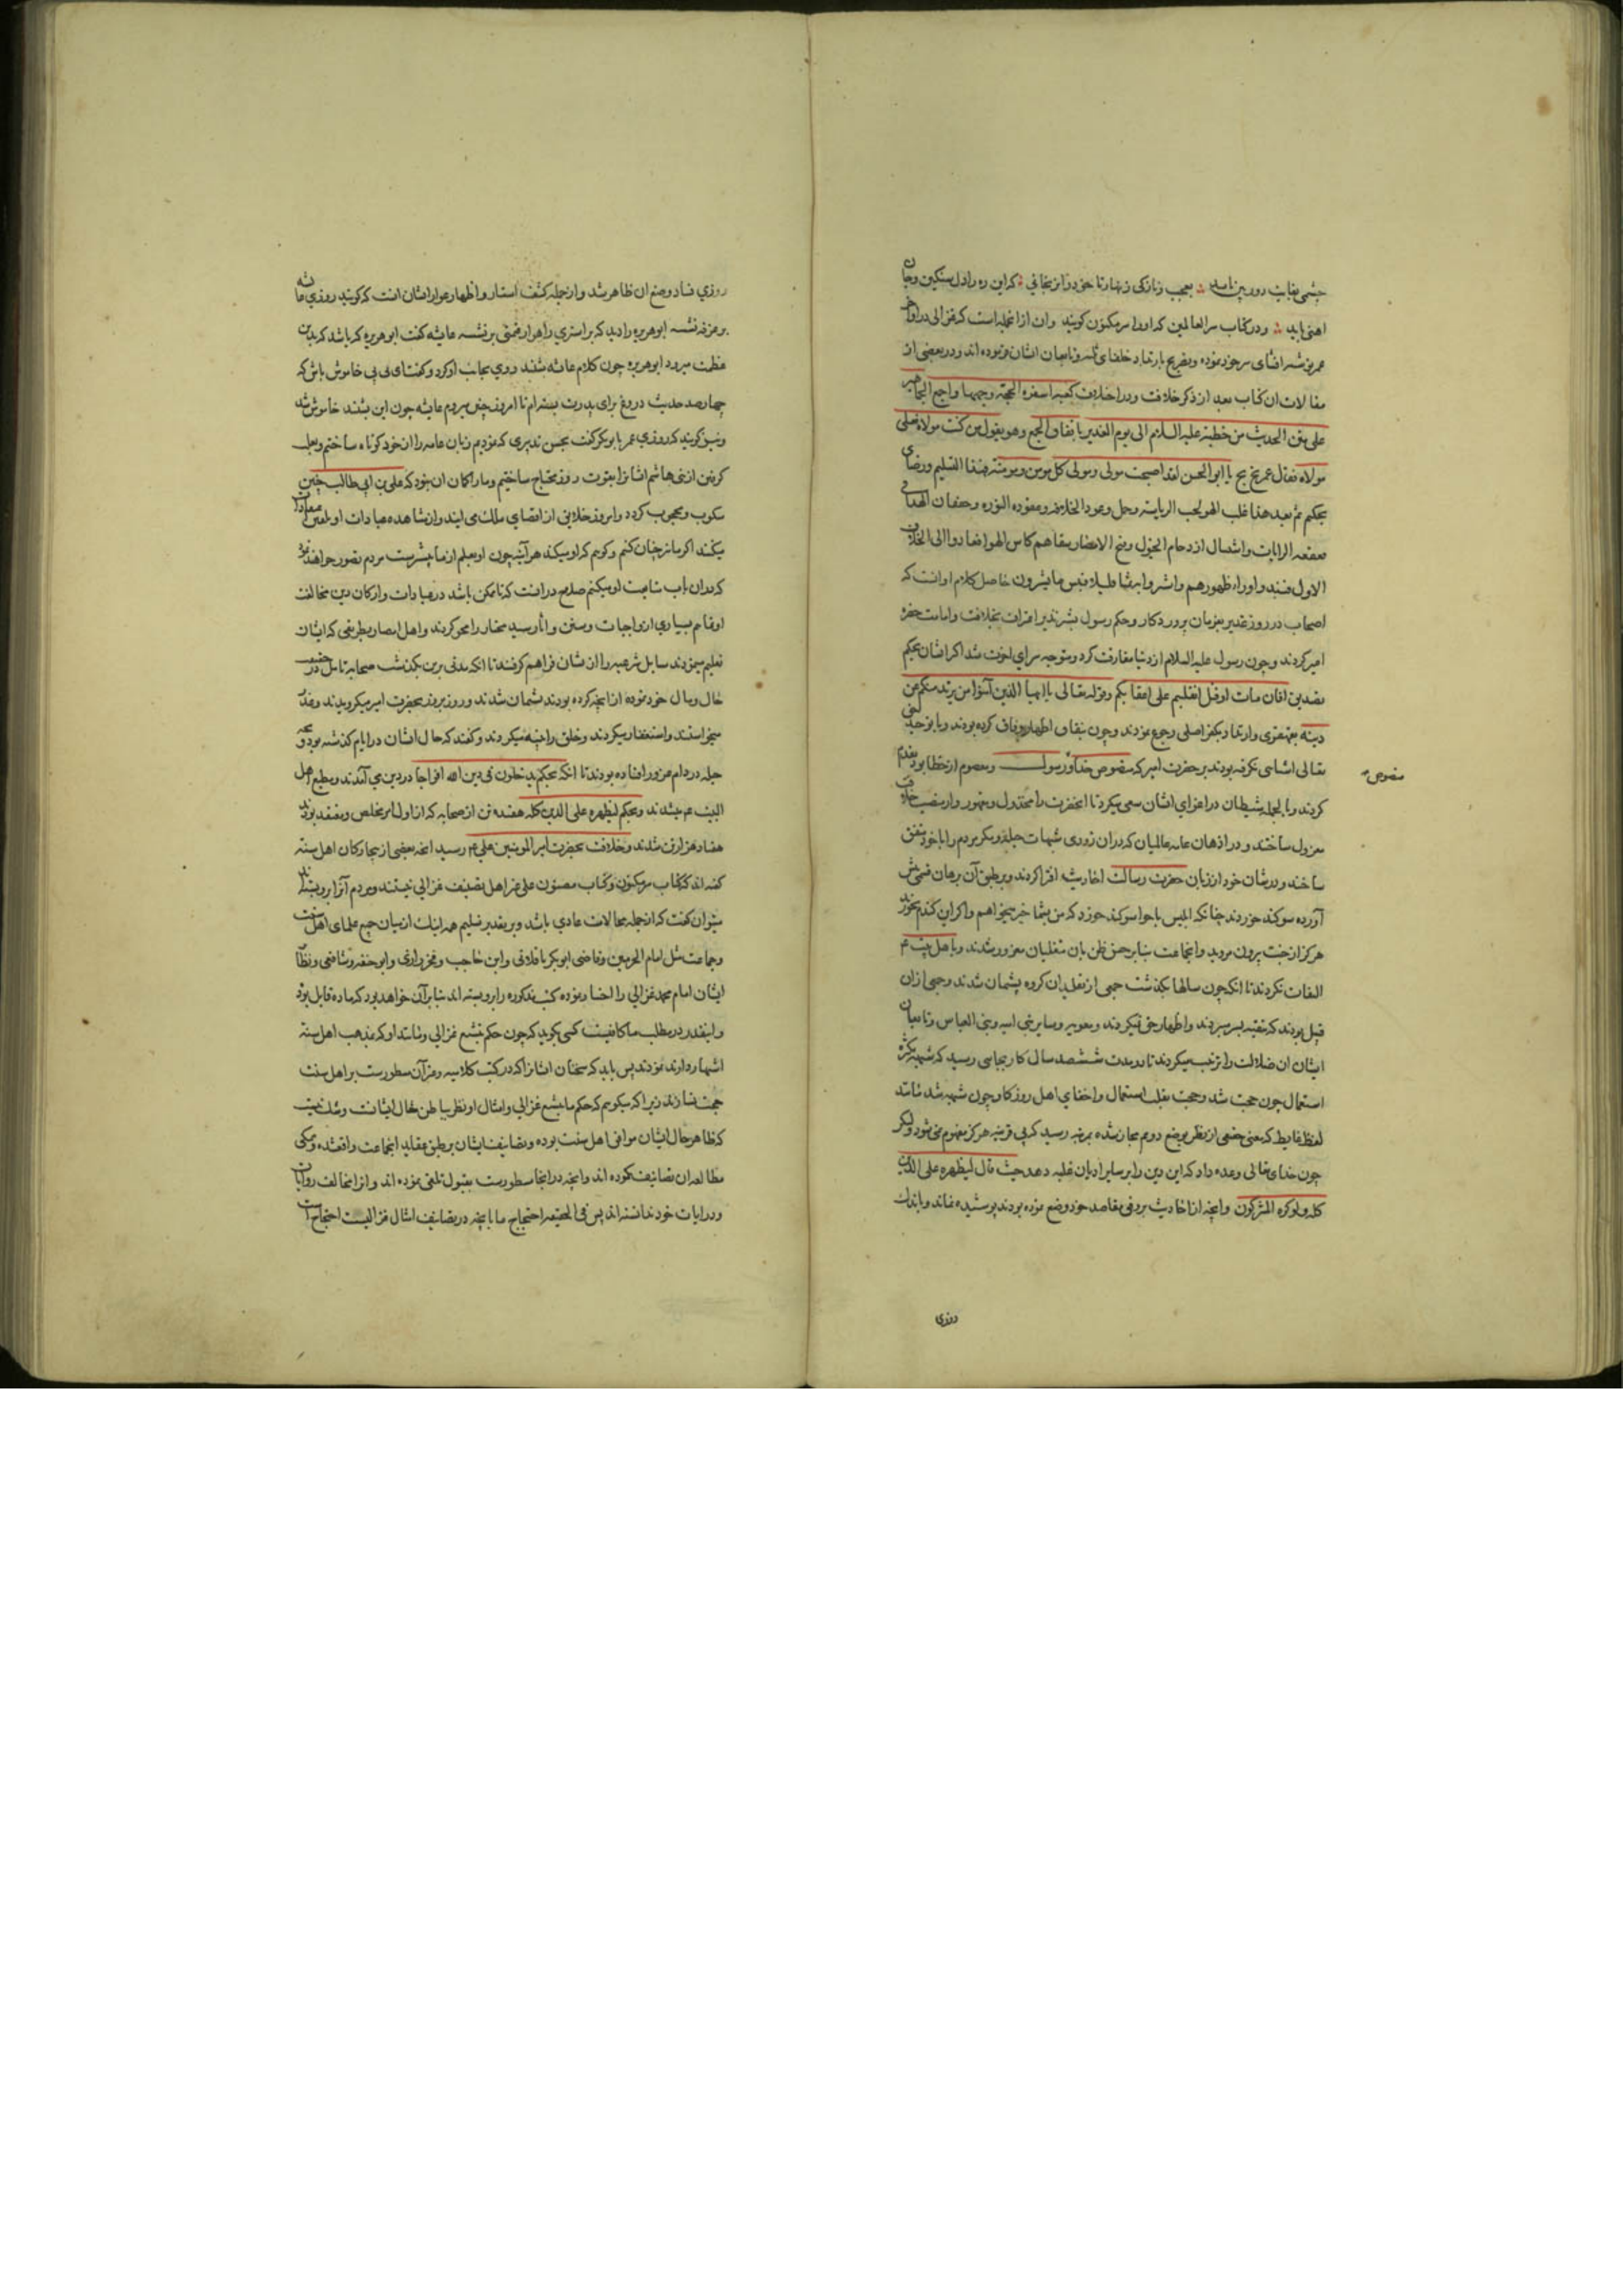 چشمی بغایت دوربین باید بعجب و نازکی زنهار تا خود را نرنجانی که این ره را دل سنگین و جان
اهنی باید و در کتاب سر العالمین که او را سر مکنون گویند و ان از انجمله است که غزالی در اواخر
عمر نوشته افشای سر خود نموده و تصریح بارتداد خلفای ثلثه و تابعان ایشان نموده اند و در بعضی از
مقالات ان کتاب بعد از ذکر خلافت و در اختلاف اسفرت الحجة وجهها و اجمع الجماهیر
علی متن الحدیث من خطبته علیه السلام الی یوم الغدیر باتفاق الجمیع و هو یقول من کنت مولاه فعلی
مولاه فقال عمر بخ بخ یا ابو الحسن لقد اصبحت مولی و مولی کل مومن و مومنة فهذا التسلیم و رضای
تحکیم ثم بعد هذا غلب الهوی لحب الریاسة و حمل عمود الخلافة و عقود البنود و خفقان الهوا فی
قعقعه الرایات و اشتعال ازدحام الخیول و فتح الامصار سقاهم کاس الهوا فعادوا الی الخلاف
الاول فنبذوه وراء ظهورهم و اشتروا به ثمنا قلیلا فبئس ما یشترون حاصل کلام او انست که
اصحاب در روز غدیر بفرمان پروردکار و حکم رسول بشیر نذیر اعتراف بخلافت و امامت حضرة
امیر کردند و چون رسول علیه السلام از دنیا مفارقت کرد و متوجه سرای اخرت شد اکر ایشان بحکم
افان مات او قتل انقلبتم علی اعقابکم و قوله تعالی یا ایها الذین آمنوا من یرتد منکم عن
دینه بقهقری و ارتداد بکفر اصلی رجوع نمودند و چون بنفاق اظهار وفاق کرده بودند و با توحید حق
تعالی اشناسی نکرفته بودند بر حضرت امیر که منصوص خدا و رسول و معصوم از خطا بود تقدم
منصوص
کردند و بالجمله شیطان در اغوای ایشان سعی میکرد تا انحضرت را مخذول و مقهور و از منصب خلافت
معزول ساختند و در اذهان عامه عالمیان که دران زودی شبهات حیله و مکر مردم را با خود متفق
ساختند و در شان خود از زبان حضرت رسالت احادیث افترا کردند و بر طبق آن برهان
آورده سوکند خوردند چنانکه ابلیس با حوا سوکند خورد که من بشما خیر میخواهم و اکر این کندم بخورند
هرکز از جنت بیرون نروید و انجماعت بنابر حسن ظن بان متغلبان مغرور شدند و باهل بیت ع
التفات نکردند تا انکه چون سالها بکذشت جمعی از تقلید ان کروه پشیمان شدند و جمعی ازان
قبیل بودند که بتقیه بسر میبردند و اظهار حق نمیکردند و معویه و سایر بنی امیه و بنی العباس و تابعان
ایشان ان ضلالت را ترغیب میکردند تا در مدت ششصد سال کار بجایی رسید که شبهه بکثرت
استعمال چون حجت شد و حجت بقلت استعمال و اخفای اهل روزکار چون شبهه شد مانند
لفظ غایط که معنی حقیقی از نظر بوضع دویم مجاز شده بمرتبه رسید که بی قرینه هرکز مفهوم نمی شود و لیکن
چون خدای تعالی وعده داد که این دین را بر سایر ادیان غلبه دهد حیث قال لیظهره علی الدین
کله و لو کره المشرکون و انچه از احادیث بر وفق مقاصد خود وضع نموده بودند پوشیده نماند و باندک
روزی
روزی فساد وضع ان ظاهر شد و از جمله کشف استار و اظهار عوار ایشان انست که کویند روزی عایشه
بر غرفه نشسته ابو هریره را دید که بر استری راهوار قیمتی بر نشسته عایشه کفت ابو هریره که باشد که بدین
عظمت میرود ابو هریره چون کلام عایشه شنید روی بجانب او کرد و کفت ای بی بی خاموش باش که
چهارصد حدیث دروغ برای پدرت بستم تا امروز چنین مردم عایشه چون این بشنید خاموش شد
و نیز کویند که روزی عمر با بو بکر کفت بحسن تدبیری که نمودیم زبان عامه را از خود کوتاه ساختیم و بعلت
کرفتن از بنی هاشم ایشانرا بقوت روز محتاج ساختیم و ما را کمان ان بود که علی بن ابی طالب چنین
منکوب و محجوب کردد و امروز خلایق از اقصای ممالک می ایند و از مشاهده عبادات او تعلیم معاد
میکنند اکر ما نیز چنان کنیم و کوییم که او میکند هر آینه چون او بعلم از ما پیشترست مردم تصور خواهند نمود
که دران باب متابعت او میکنیم صلاح در انست که تا ممکن باشد در عبادات و ارکان دین مخالفت
او نماییم بسیاری از واجبات و سنن و آثار سید مختار را محو کردند و اهل امصار بطریقی که ایشان
تعلیم مینمودند مسایل شرعیه را از ایشان فرا هم کرفتند تا انکه مدتی برین بکذشت صحابه تامل در حقیقت
حال و مال خود نموده از انچه کرده بودند پشیمان شدند و روز بروز بحضرت امیر میکرویدند و عذر
میخواستند و استغفار میکردند و خلق را تنبیه میکردند و کفتند که حال ایشان در ایام کذشته بود و بچه
حیله در دام غرور افتاده بودند تا انکه بحکم یدخلون فی دین الله افواجا در دین می آمدند و مطیع اهل
البیت ع میشدند و بحکم لیظهره علی الدین کله هفده تن از صحابه که از اول امر مخلص و معتقد بودند
هفتاد هزار تن شدند و خلافت بحضرت امیر المومنین علی ع رسید انچه بعضی از بیچارکان اهل سنة
کفته اند که کتاب سر مکنون و کتاب مضنون علی غیر اهله تصنیف غزالی نیستند و مردم آنرا برو بسته‌اند
میتوان کفت که از جمله محالات عادی باشد و بر تقدیر تسلیم همه اینک از میان جمیع علمای اهل سنت
و جماعت مثل امام الحرمین و قاضی ابو بکر باقلانی و ابن حاجب و فخر رازی و ابو حنفیه و شافعی و نظایر
ایشان امام محمد غزالی را اختیار نموده کتب مذکوره را برو بسته اند بنابر آن خواهد بود که ماده قابل بود
و اینقدر در مطلب ما کافیست کسی نکوید که چون حکم بتشیع غزالی و مانند او که بمذهب اهل سنة
اشتهار دارند نمودند پس باید که سخنان ایشانرا که در کتب کلامیه و غیر آن مسطورست بر اهل سنت
حجت نسازند زیرا که میکوییم که حکم ما بتشیع غزالی و امثال او نظر بباطن حال ایشانست و شک نیست
که ظاهر حال ایشان موافق اهل سنت بوده و تصانیف ایشان بر طبق عقاید انجماعت واقعشده و همکی
مطالعه ان تصانیف کرده اند و انچه در انجا مسطورست بقبول تلقی نموده اند و انرا مخالف روایات
و درایات خود ندانسته اند پس فی الحقیقه احتجاج ما بانچه در تصانیف امثال غزالیست احتجاج است